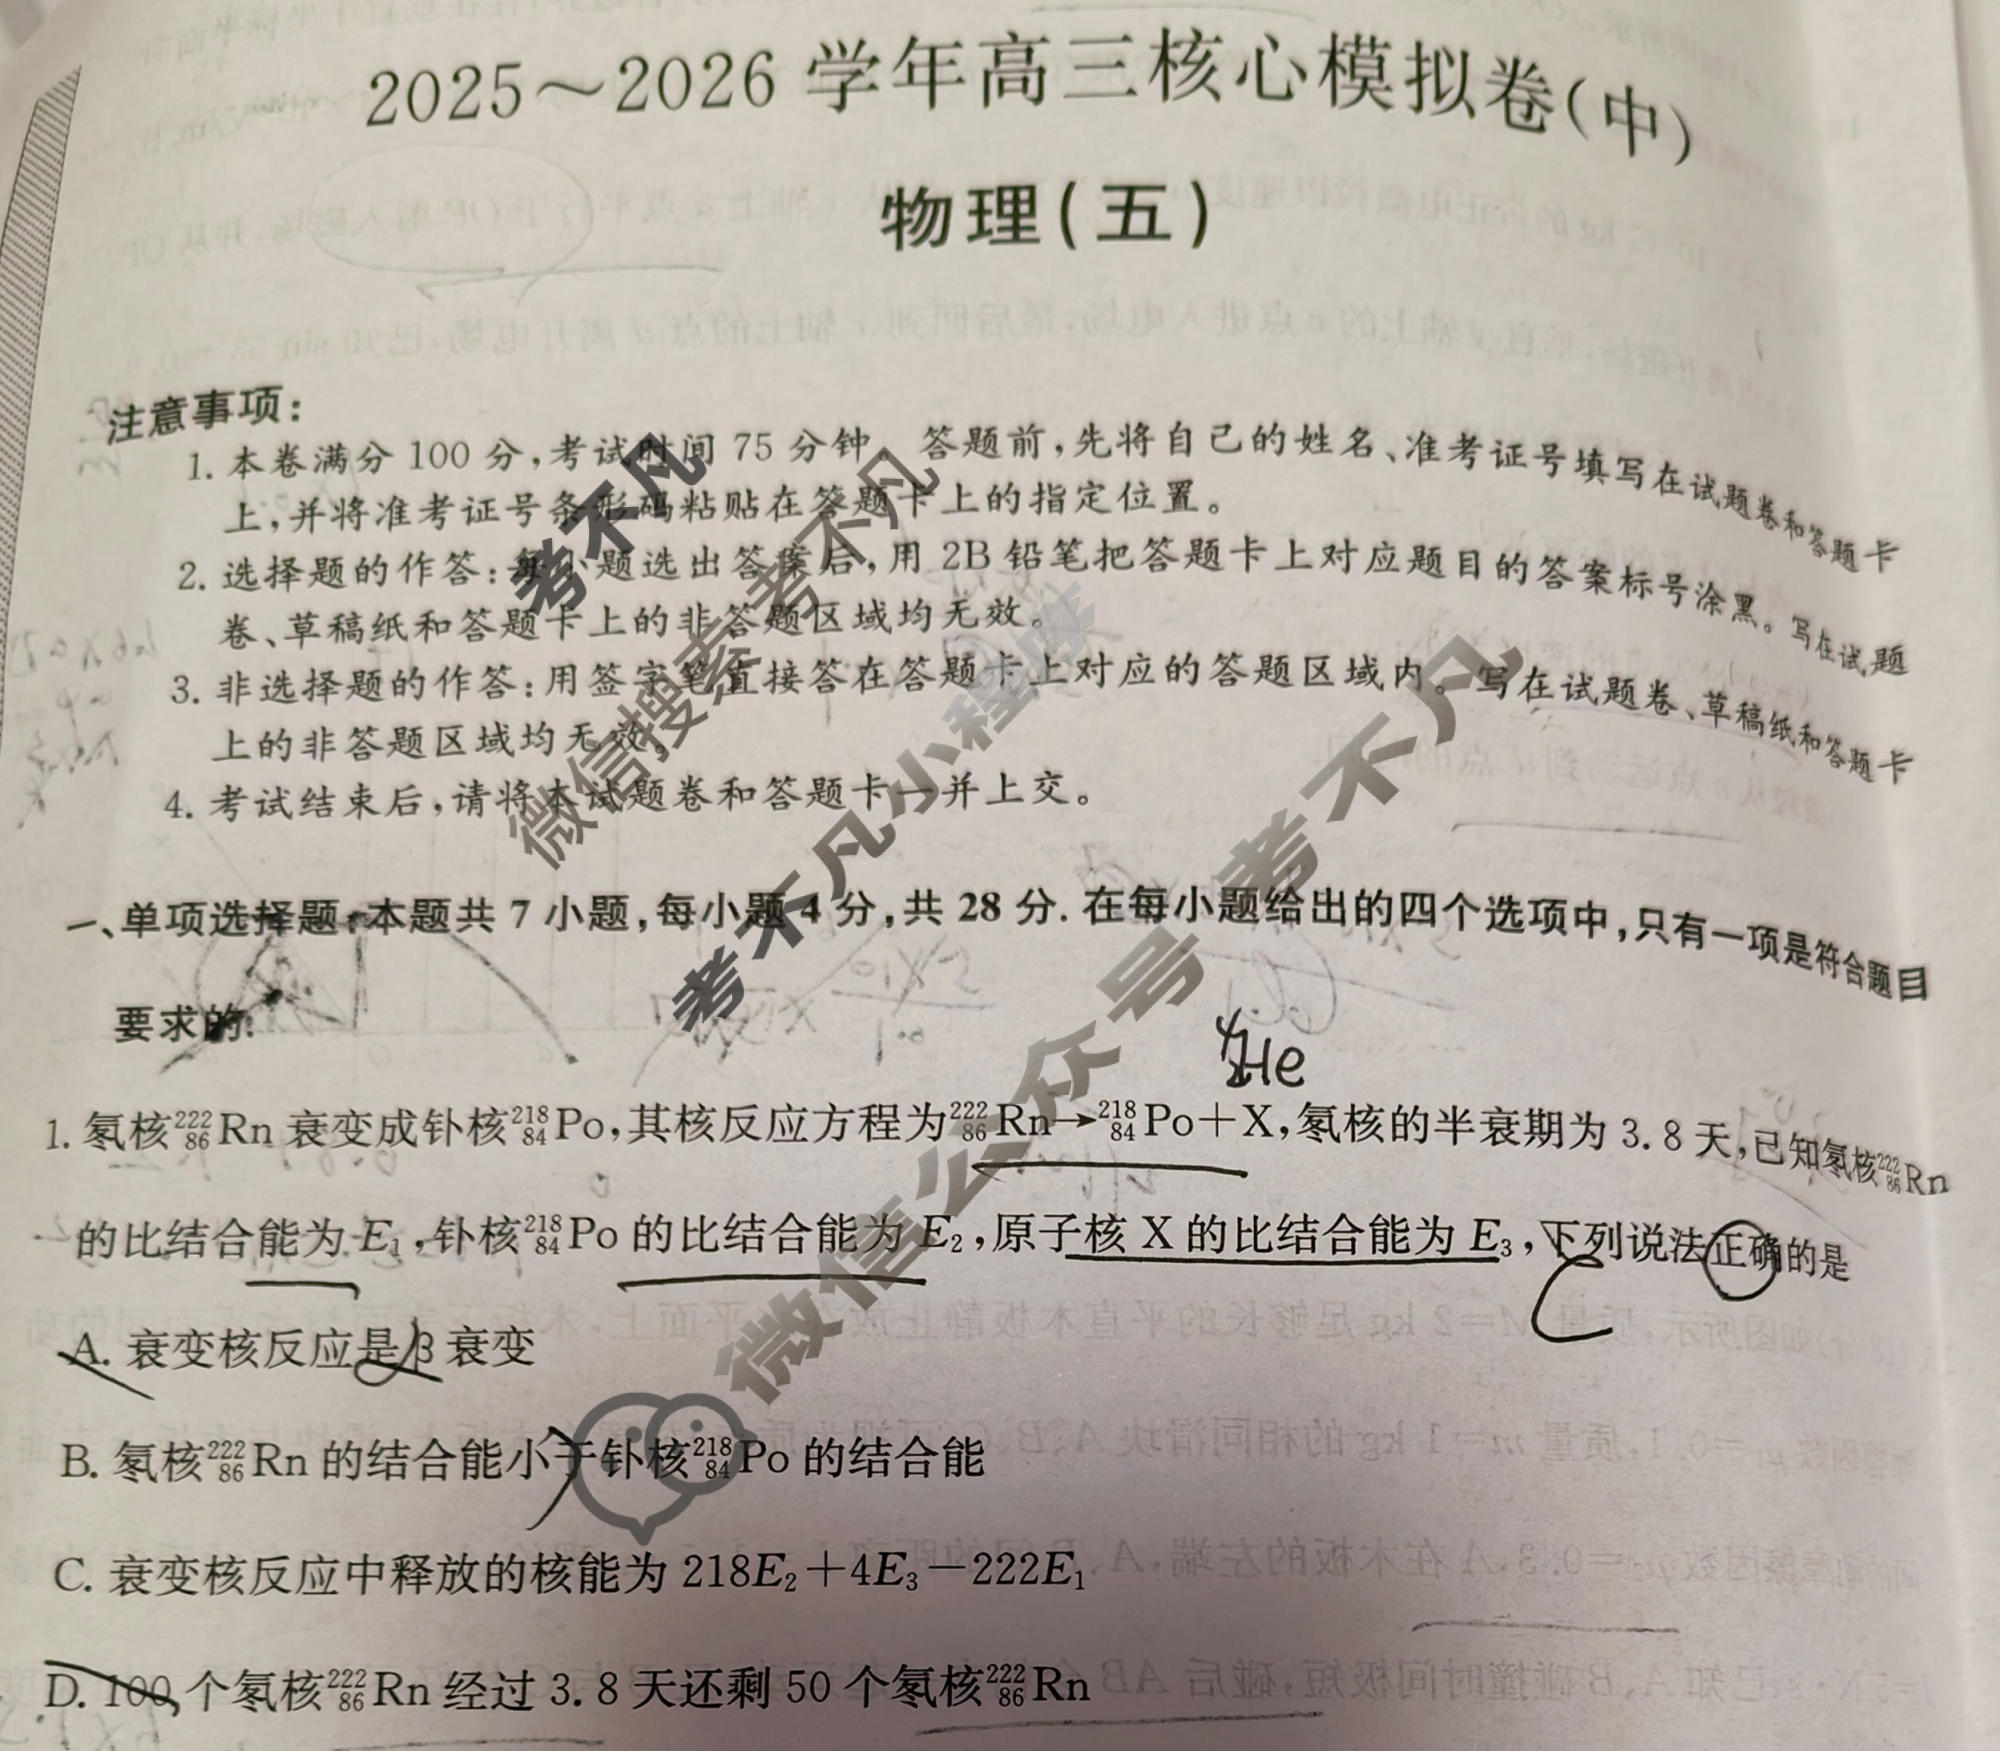 2025～2026 学年高三核心模拟卷(中)
物理(五)
注意事项:
1. 本卷满分 100 分,考试时间 75 分钟。答题前,先将自己的姓名、准考证号填写在试题卷和答题卡
上,并将准考证号条形码粘贴在答题卡上的指定位置。
2. 选择题的作答:每小题选出答案后,用 2B 铅笔把答题卡上对应题目的答案标号涂黑。写在试题
卷、草稿纸和答题卡上的非答题区域均无效。
3. 非选择题的作答:用签字笔直接答在答题卡上对应的答题区域内。写在试题卷、草稿纸和答题卡
上的非答题区域均无效。
4. 考试结束后,请将本试题卷和答题卡一并上交。
考不凡
微信搜索考不凡
考不凡小程序
微信公众号 考不凡
一、单项选择题:本题共 7 小题,每小题 4 分,共 28 分. 在每小题给出的四个选项中,只有一项是符合题目
要求的.
⁴₂He
1. 氡核²²²₈₆Rn 衰变成钋核²¹⁸₈₄Po,其核反应方程为²²²₈₆Rn→²¹⁸₈₄Po+X,氡核的半衰期为 3.8 天,已知氡核²²²₈₆Rn
的比结合能为 E₁,钋核²¹⁸₈₄Po 的比结合能为 E₂,原子核 X 的比结合能为 E₃,下列说法正确的是
C
A. 衰变核反应是 β 衰变
B. 氡核²²²₈₆Rn 的结合能小于钋核²¹⁸₈₄Po 的结合能
C. 衰变核反应中释放的核能为 218E₂+4E₃−222E₁
D. 100 个氡核²²²₈₆Rn 经过 3.8 天还剩 50 个氡核²²²₈₆Rn